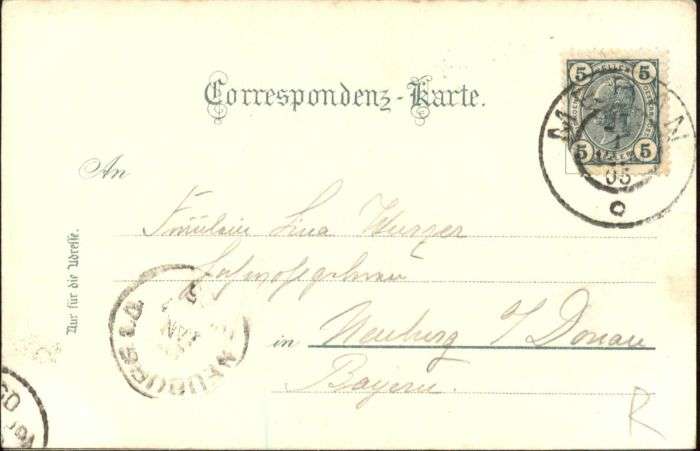 Correspondenz-Karte.
5 5
5 5
MERAN
05
An
Fräulein Lina Wurzer
in Neuburg a/Donau
Bayern.
Nur für die Adresse.
NEUBURG a.D.
JAN
R